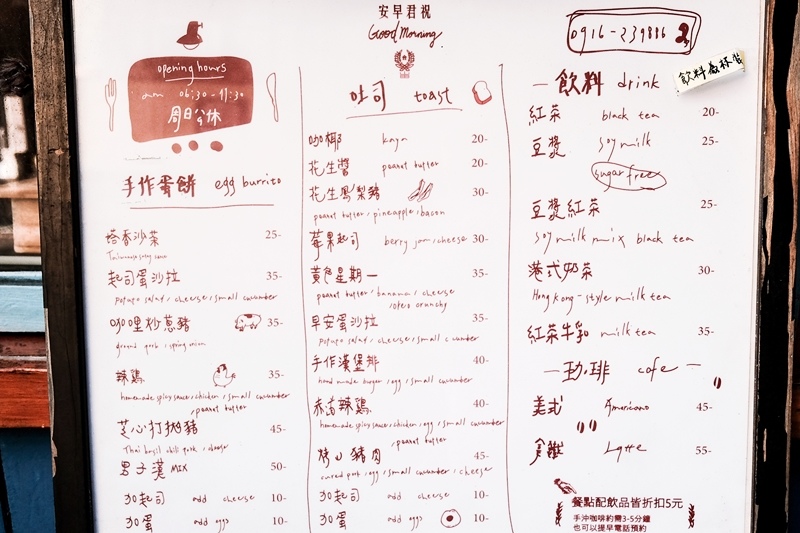 安早君祝
Good Morning.
0916-239886
opening hours
am 06:30-11:30
周日公休
手作蛋餅 egg burrito
塔香沙茶 25-
起司蛋沙拉 35-
potato salad / cheese / small cucumber
咖哩炒蔥豬 35-
ground pork / spring onion
辣雞 35-
homemade spicy sauce / chicken / small cucumber
/ peanut butter
芝心打拋豬 45-
Thai basil chili pork / cheese
男子漢 MIX 50-
加起司 add cheese 10-
加蛋 add eggs 10-
吐司 toast
咖椰 kaya 20-
花生醬 peanut butter 20-
花生鳳梨豬 30-
peanut butter / pineapple / bacon
莓果起司 berry jam / cheese 30-
黃色星期一 35-
peanut butter / banana / cheese
/ oreo crunchy
早安蛋沙拉 35-
potato salad / cheese / small cucumber
手作漢堡排 40-
hand made burger / egg / small cucumber
赤道辣雞 40-
homemade spicy sauce / chicken / egg / small cucumber
/ peanut butter
烤山豬肉 45-
cured pork / egg / small cucumber / cheese
加起司 add cheese 10-
加蛋 add eggs 10-
— 飲料 drink
紅茶 black tea 20-
豆漿 soy milk 25-
sugar free
豆漿紅茶 25-
soy milk mix black tea
港式奶茶 30-
Hong kong-style milk tea
紅茶牛乳 milk tea 35-
— 珈琲 cafe —
美式 Americano 45-
拿鐵 Latte 55-
餐點配飲品皆折扣5元
手沖咖啡約需3-5分鐘
也可以提早電話預約